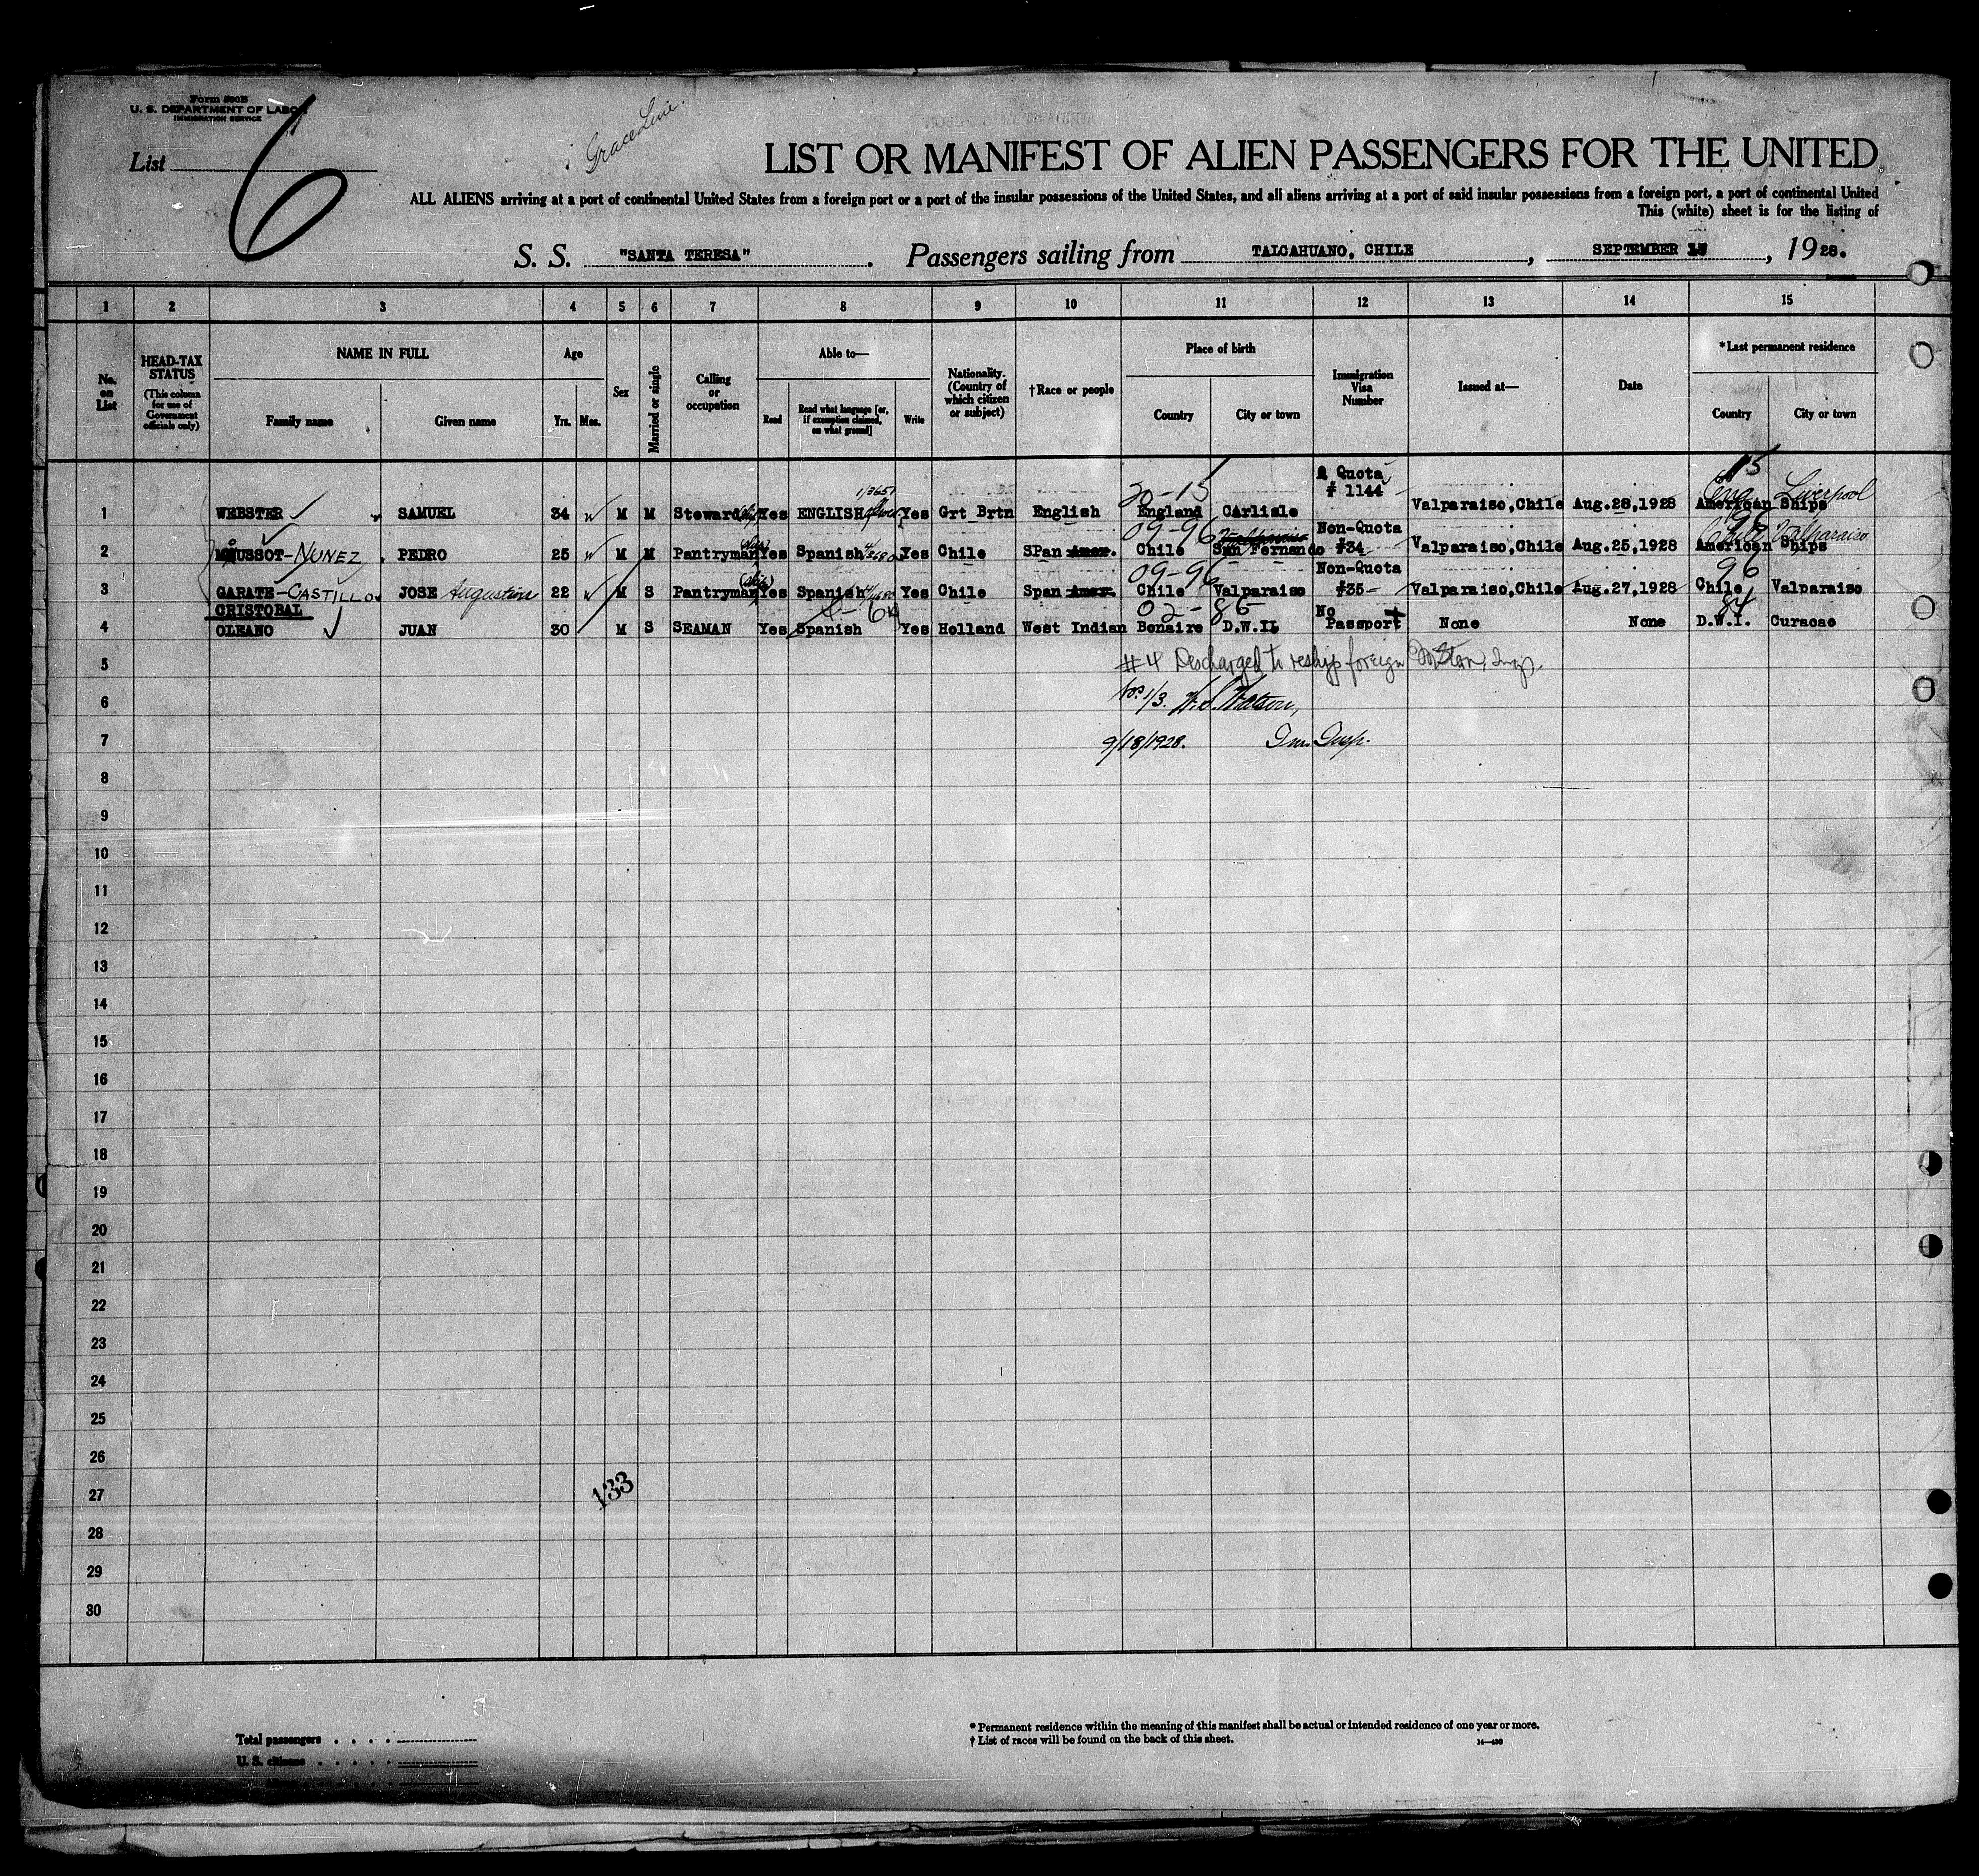 Form 500B
U. S. DEPARTMENT OF LABOR
IMMIGRATION SERVICE
List 6
Grace Line.
LIST OR MANIFEST OF ALIEN PASSENGERS FOR THE UNITED
ALL ALIENS arriving at a port of continental United States from a foreign port or a port of the insular possessions of the United States, and all aliens arriving at a port of said insular possessions from a foreign port, a port of continental United
This (white) sheet is for the listing of
S. S. "SANTA TERESA". Passengers sailing from TALCAHUANO, CHILE, SEPTEMBER , 1928.
1 2 3 4 5 6 7 8 9 10 11 12 13 14 15
No. on List
HEAD-TAX STATUS
(This column for use of Government officials only)
NAME IN FULL
Family name
Given name
Age
Yrs. Mos.
Sex
Married or single
Calling or occupation
Able to—
Read
Read what language [or, if exemption claimed, on what ground]
Write
Nationality. (Country of which citizen or subject)
†Race or people
Place of birth
Country
City or town
Immigration Visa Number
Issued at—
Date
*Last permanent residence
Country
City or town
1/3651 30-15 Quota 15
# 1144 Eng. Liverpool
1 WEBSTER SAMUEL 34 M M Steward Yes ENGLISH Yes Grt Brtn English England CArlisle Valparaiso,Chile Aug.28,1928 American Ships
09-96 Valparaiso Non-Quota 96 Chile Valparaiso
2 MAUSSOT-NUNEZ PEDRO 25 M M Pantryman (ship) Yes Spanish Yes Chile SPan Amer. Chile San Fernando #34 Valparaiso,Chile Aug.25,1928 American Ships
09-96 Non-Quota 96
3 GARATE-CASTILLO JOSE Augustin 22 M S Pantryman (ship) Yes Spanish Yes Chile Span Amer. Chile Valparaiso #35 Valparaiso,Chile Aug.27,1928 Chile Valparaiso
CRISTOBAL 02-85 No 84
4 OLEANO JUAN 30 M S SEAMAN Yes Spanish Yes Holland West Indian Bonaire D.W.II Passport None None D.W.I. Curacao
5 #4 Discharged to reship foreign
6 Nos 1/3. W. S. Watson,
7 9/18/1928. Im. Insp.
8
9
10
11
12
13
14
15
16
17
18
19
20
21
22
23
24
25
26
27 133
28
29
30
Total passengers . . . .
U. S. citizens . . . . .
* Permanent residence within the meaning of this manifest shall be actual or intended residence of one year or more.
† List of races will be found on the back of this sheet.